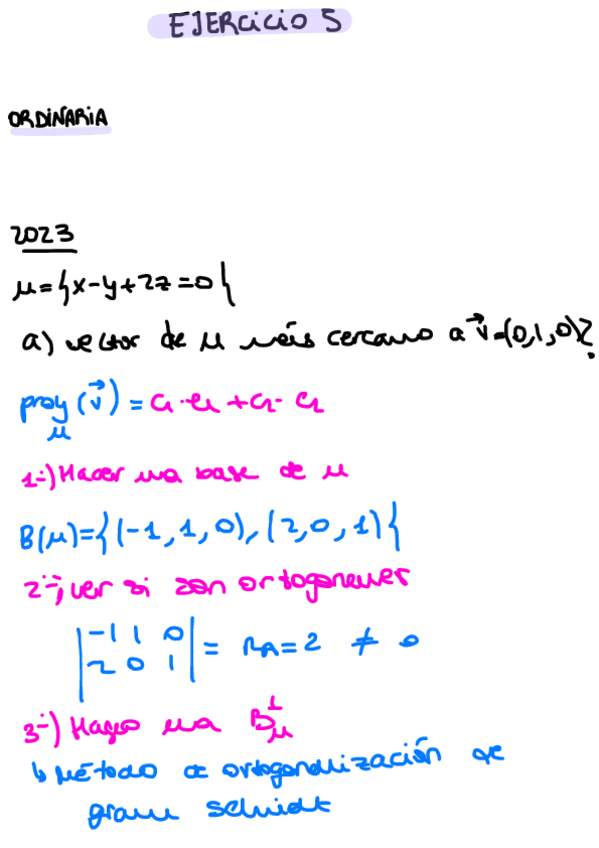 EJERCICIO 5
ORDINARIA
2023
μ={x-y+2z=0}
a) vector de μ más cercano a v⃗=(0,1,0)?
proy_μ (v⃗) = c₁·e₁ + c₂·e₂
1º) Hacer una base de μ
B(μ)={(-1,1,0),(2,0,1)}
2º) ver si son ortogonales
|-1 1 0|
|2 0 1| = RA=2 ≠ 0
3º) Hago una B^⊥_μ
↳ Método de ortogonalización de
gram schmidt